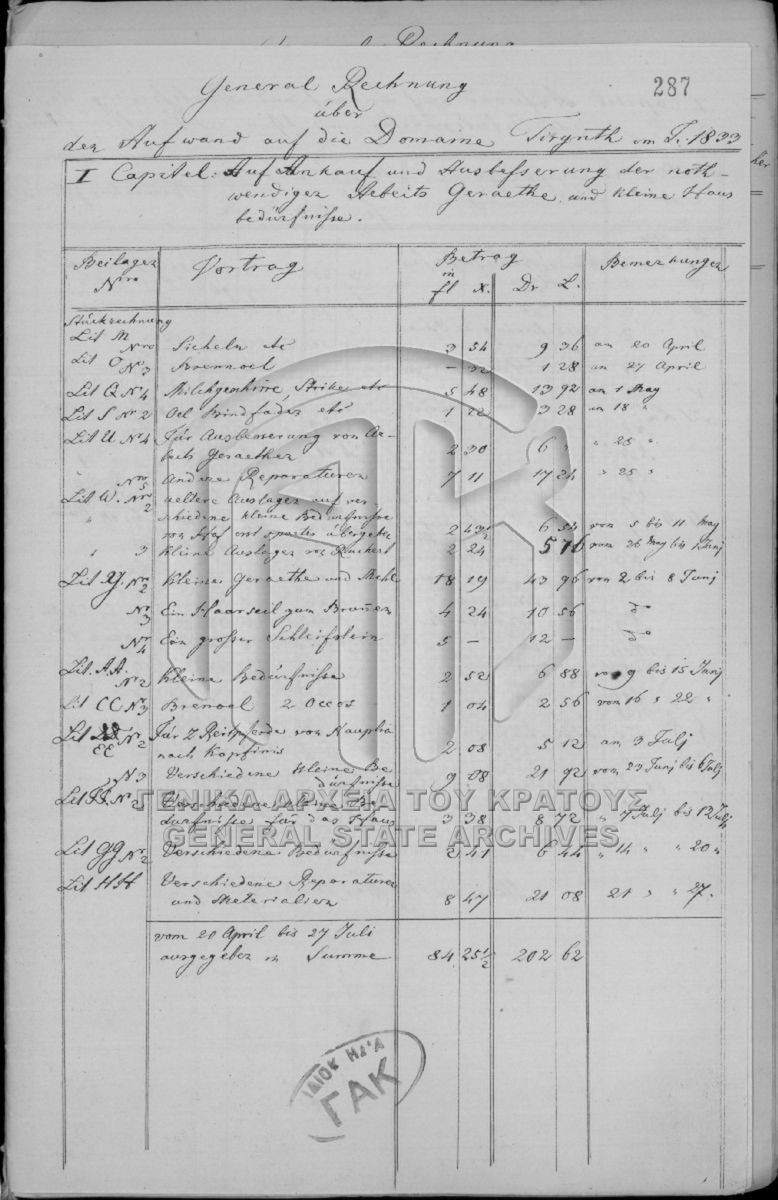 287
General Rechnung
über
den Aufwand auf die Domaine Tirynth im J. 1833
I Capitel: Auf Ankauf und Ausbesserung der noth-
wendigen Arbeits Geraethe und kleine Haus
bedürfnisse.
Beilagen Nro Vortrag Betrag in Bemerkungen
fl x. Dr L.
Stückrechnung
Lit M Nro Sicheln etc 3 54 9 36 am 20 April
Lit O No 3 Brennoel – 32 1 28 am 27 April
Lit Q No 4 Milchgeschirre, Stricke etc 5 48 13 92 am 1 May
Lit S No 2 Oel Bindfaden etc 1 22 3 28 am 18 "
Lit U No 4 Für Ausbesserung von Ar-
beits Geraethen 2 30 6 " " 25 "
" Nro 5 Andere Reparaturen 7 11 17 24 " 25 "
Lit W. Nro 2 aeltere Auslagen auf ver
schiedene kleine Bedürfnisse
von Hof erst spaeter übergeben 2 43½ 6 54 von 5 bis 11 May
" 3 kleine Auslagen von 2 24 5 76 vom 26 May bis 1 Junj
Lit Y. Nro 2 kleine Geraethe und Mehl 18 19 43 96 von 2 bis 8 Junj
Nr 3 Ein Haarseil zum Brunnen 4 24 10 56 do
Nr 4 Ein grosser Schleifstein 5 – 12 – do
Lit. A.A. No 2 Kleine Bedürfnisse 2 52 6 88 von 9 bis 15 Junj
Lit CC No 3 Brenoel 2 Occos 1 04 2 56 vom 16 " 22 "
Lit EE No 2 Für 2 Reitpferde von Nauplia
nach 2 08 5 12 am 3 Julj
N. 3 Verschiedene kleine Be
dürfnisse 9 08 21 92 vom 23 Junj bis 6 Julj
Lit No 2 Verschiedene kleine Be
dürfnisse für das Haus 3 38 8 72 " 7 Julj bis 13 Julj
Lit GG Nr 2 Verschiedene Bedürfnisse 2 41 6 44 " 14 " " 20 "
Lit HH Verschiedene Reparaturen
und Materialien 8 47 21 08 21 " " 27.
vom 20 April bis 27 Juli
ausgegeben in Summe 84 25½ 202 62
ΓΕΝΙΚΑ ΑΡΧΕΙΑ ΤΟΥ ΚΡΑΤΟΥΣ
GENERAL STATE ARCHIVES
ΓΑΚ